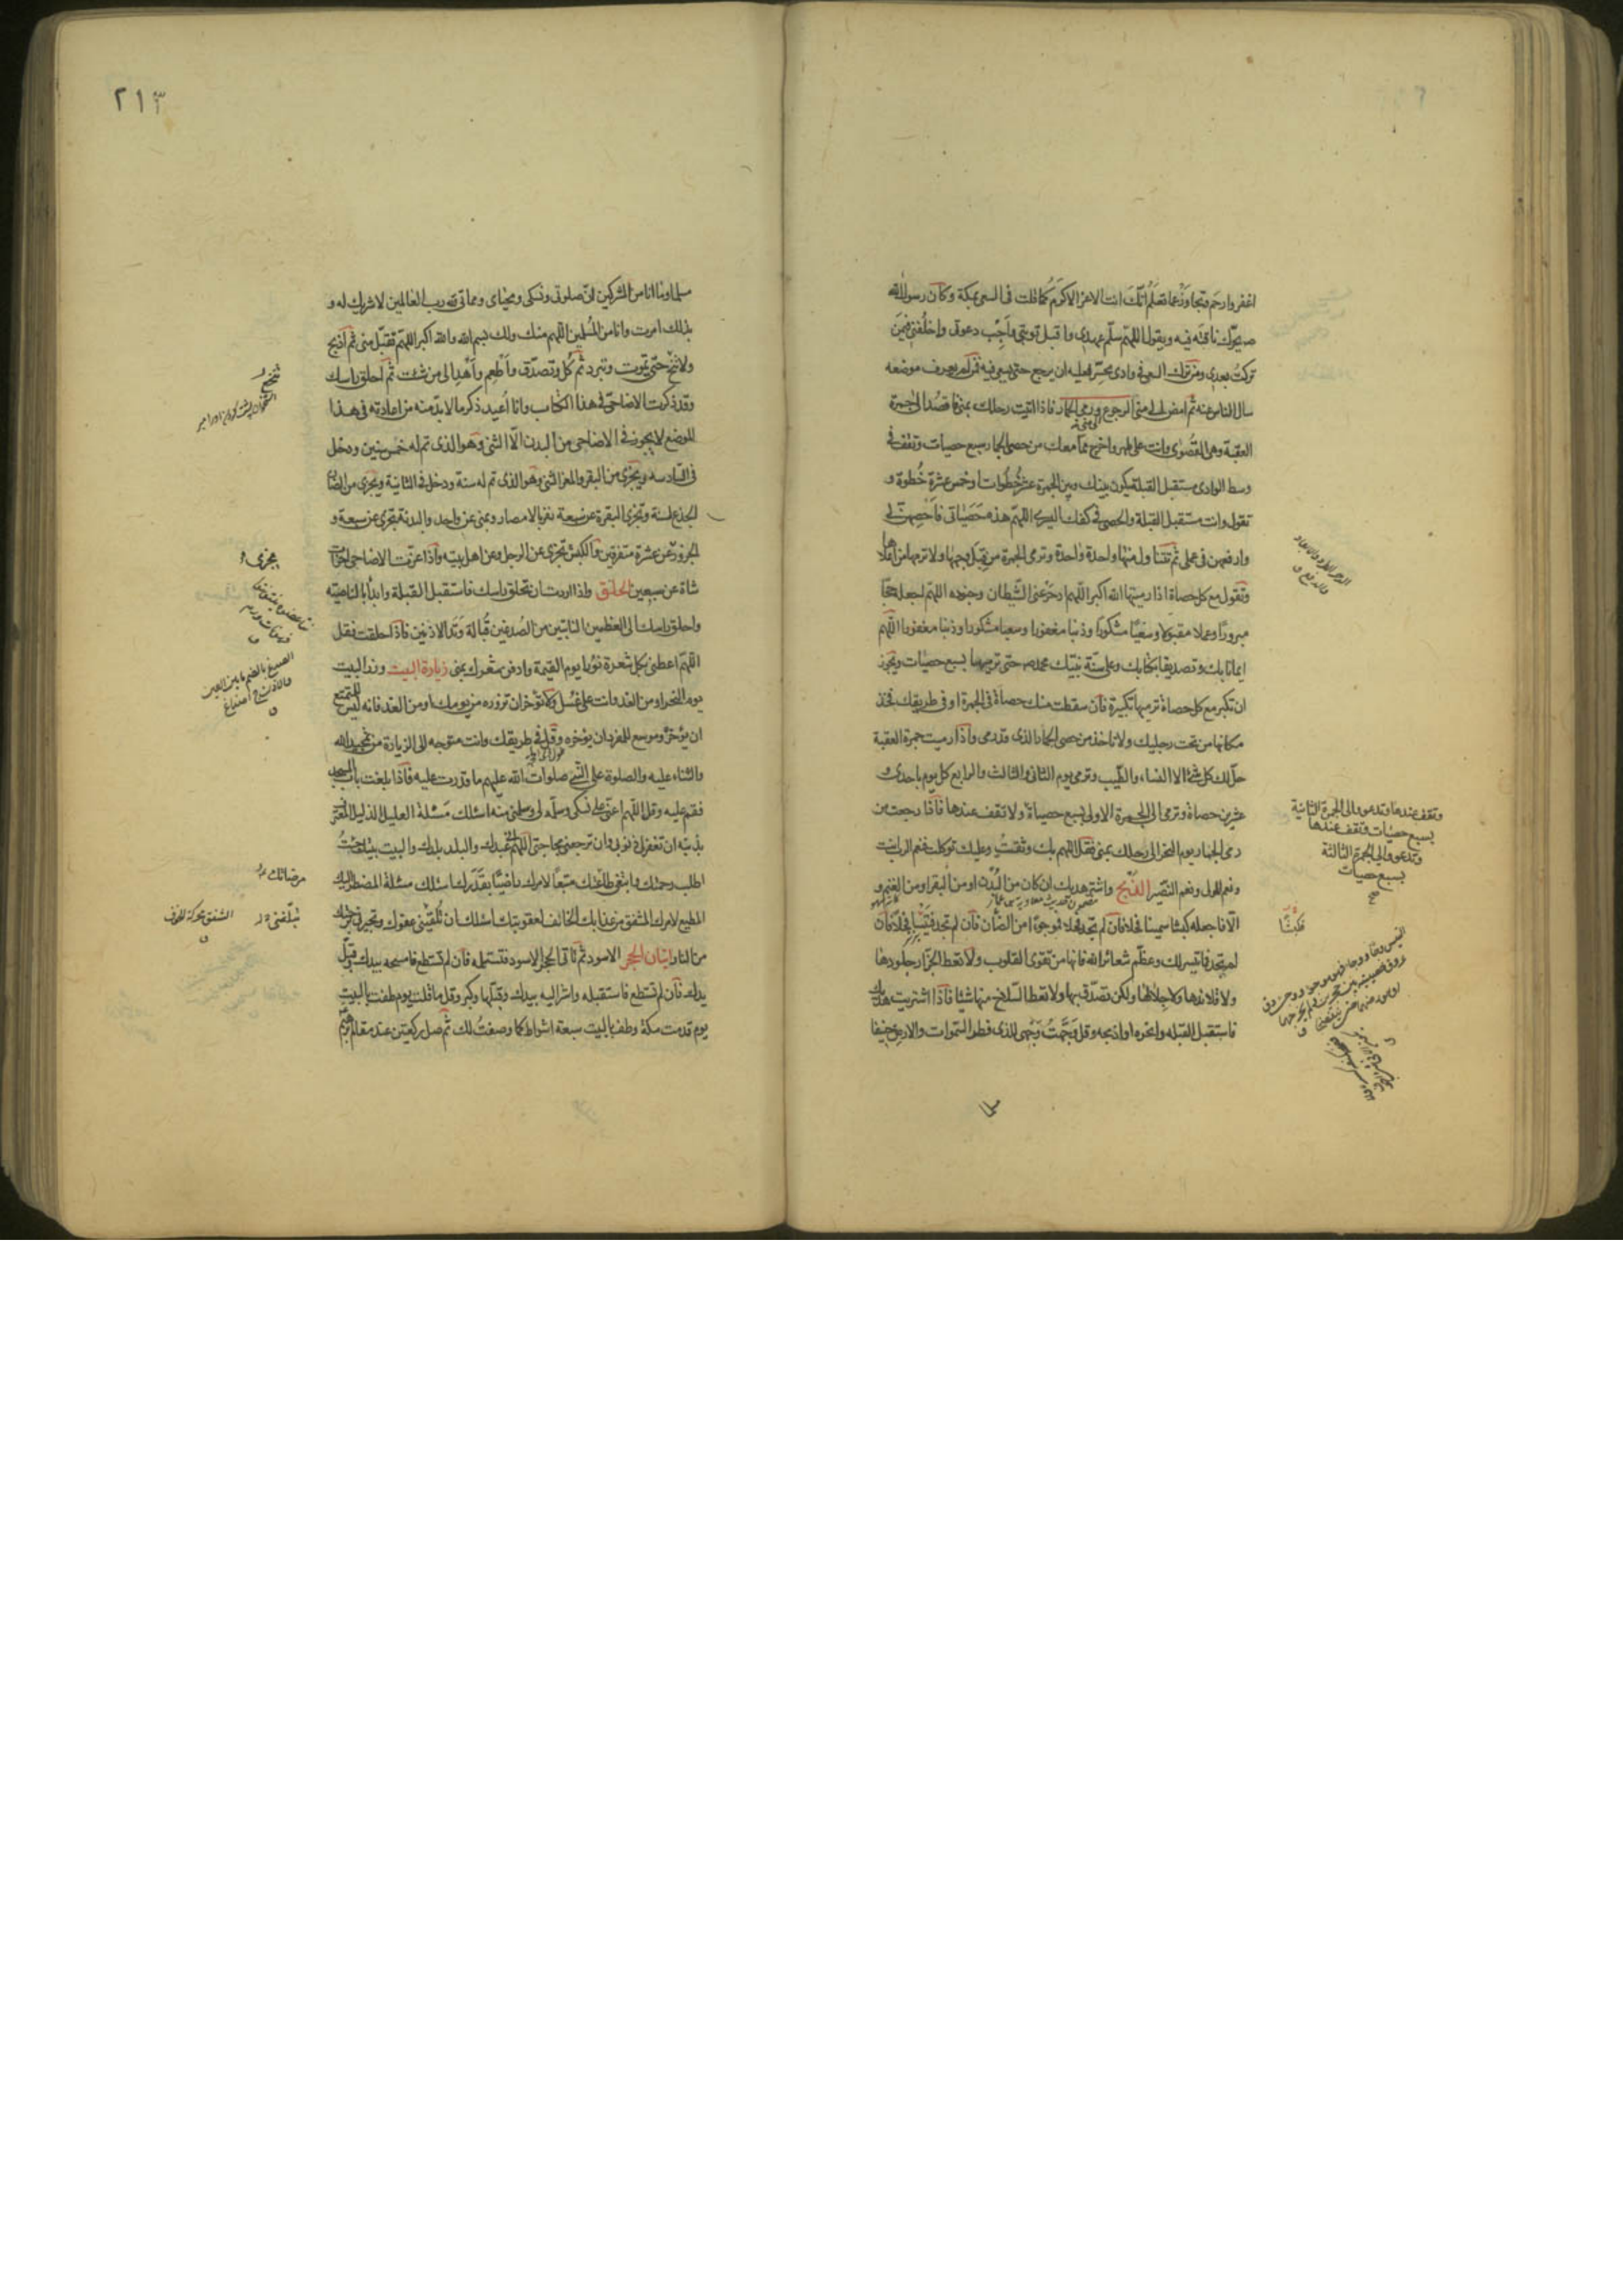 اغفر وارحم وتجاوز عما تعلم انك انت الاعز الاكرم كما قلت فى السعى بمكة وكان رسول الله
ص يحرك ناقته فيه ويقول اللهم سلم عهدى واقبل توبتى واجب دعوتى واخلفنى فيمن
تركت بعدى ومن ترك السعى فى وادى محسر فعليه ان يرجع حتى يسعى فيه فمن لم يعرف موضعه
سال الناس عنه ثم امض الى منى الرجوع ورمى الجمار فاذا اتيت رحلك بمنى فاقصد الى جمرة
العقبة وهى القصوى وانت على طهر واخرج مما معك من حصى الجمار سبع حصيات وتقف فى
وسط الوادى مستقبل القبلة يكون بينك وبين الجمرة عشر خطوات او خمس عشرة خطوة و
تقول وانت مستقبل القبلة والحصى فى كفك اليسرى اللهم هذه حصياتى فاحصهن لى
وارفعهن فى عملى ثم تتناول منها واحدة واحدة وترمى الجمرة من قبل وجهها ولا ترمها من اعلاها
وتقول مع كل حصاة اذا رميتها الله اكبر اللهم ادحر عنى الشيطان وجنوده اللهم اجعله حجا
مبرورا وعملا مقبولا وسعيا مشكورا وذنبا مغفورا وسعيا مشكورا وذنبا مغفورا اللهم
ايمانا بك وتصديقا بكتابك وعلى سنة نبيك محمد ص حتى ترميها بسبع حصيات ويجوز
ان تكبر مع كل حصاة ترميها تكبيرة فان سقطت منك حصاة فى الجمرة او فى طريقك فخذ
مكانها من تحت رجليك ولا تاخذ من حصى الجمار الذى قد رمى واذا رميت جمرة العقبة
حل لك كل شئ الا النساء والطيب وترمى يوم الثانى والثالث والرابع كل يوم باحدى و
عشرين حصاة وترمى الى الجمرة الاولى بسبع حصياة ولا تقف عندها فاذا رجعت من
رمى الجمار يوم النحر الى رحلك بمنى فقل اللهم بك وثقت وعليك توكلت فنعم الرب انت
ونعم المولى ونعم النصير الذبح واشتر هديك ان كان من البدن او من البقر او من الغنم و
الا فاجعله كبشا سمينا فحلا فان لم تجد فحلا فموجوءا من الضان فان لم تجد فتيسا فحلا فان
لم تجد فما تيسر لك وعظم شعائر الله فانها من تقوى القلوب ولا تعط الجزار جلودها
ولا قلائدها ولا جلالها ولكن تصدق بها ولا تعط السلاخ منها شيئا فاذا اشتريت هديك
فاستقبل القبلة وانحره او اذبحه وقل وجهت وجهى للذى فطر السموات والارض حنيفا
وتقف عندها وتدعو والى الجمرة الثانية
بسبع حصيات وتقف عندها
وتدعو والى الجمرة الثالثة
بسبع حصيات
صح
فكبشا
٢١٣
مسلما وما انا من المشركين ان صلوتى ونسكى ومحياى ومماتى لله رب العالمين لا شريك له و
بذلك امرت وانا من المسلمين اللهم منك ولك بسم الله والله اكبر اللهم تقبل منى ثم اذبح
ولا تنخع حتى تموت وتبرد ثم كل وتصدق واطعم واهد الى من شئت ثم احلق راسك
وقد ذكرت الاضاحى فى هذا الكتاب وانا اعيد ذكر ما لا بد منه من اعادته فى هذا
الموضع لا يجوز فى الاضاحى من البدن الا الثنى وهو الذى تم له خمس سنين ودخل
فى السادسه ويجزى من البقر والمعز الثنى وهو الذى تم له سنة ودخل فى الثانية ويجزى من الضان
الجذع لسنة وتجزى البقرة عن سبعة نفر بالامصار وبمنى عن واحد والبدنة تجزى عن سبعة و
الجزور عن عشرة متفرقين والكبش تجزى عن الرجل وعن اهل بيته واذا عزت الاضاحى اجزات
شاة عن سبعين الحلق واذا اردت ان تحلق راسك فاستقبل القبلة وابدأ بالناصية
واحلق راسك الى العظمين النابتين من الصدغين قبالة وتد الاذنين فاذا حلقت فقل
اللهم اعطنى بكل شعرة نورا يوم القيمة وادفن شعرك بمنى زيارة البيت وزر البيت
يوم النحر او من الغد وانت على غسل ولا تؤخر ان تزوره من يومك او من الغد فانه ليس للمتمتع
ان يؤخره وموسع للمفرد ان يؤخره وقل فى طريقك وانت متوجه الى الزيارة من تمجيد الله
والثناء عليه والصلوة على النبى صلوات الله عليهم ما قدرت عليه فاذا بلغت باب المسجد
فقم عليه وقل اللهم اعنى على نسكى وسلمه لى وسلمنى منه اسئلك مسئلة العليل الذليل المعترف
بذنبه ان تغفر لى ذنوبى وان ترجعنى بحاجتى اللهم انى عبدك والبلد بلدك والبيت بيتك جئت
اطلب رحمتك وابتغى طاعتك متبعا لامرك راضيا بقدرك اسئلك مسئلة المضطر اليك
المطيع لامرك المشفق من عذابك الخائف لعقوبتك اسئلك ان تلقينى عفوك وتجيرنى برحمتك
من النار اتيان الحجر الاسود ثم تاتى الحجر الاسود فتستلمه فان لم تستطع فامسحه بيدك وقبل
يدك فان لم تستطع فاستقبله واشر اليه بيدك وقبلها وكبر وقل ما قلت يوم طفت بالبيت
يوم قدمت مكة وطف بالبيت سبعة اشواط كما وصفت لك ثم صل ركعتين عند مقام ابرهيم
تنخع
يجزى
الصدغ بالضم ما بين العين
والاذن ج اصداغ
مرضاتك
تبلغنى
الشفق محركة الخوف